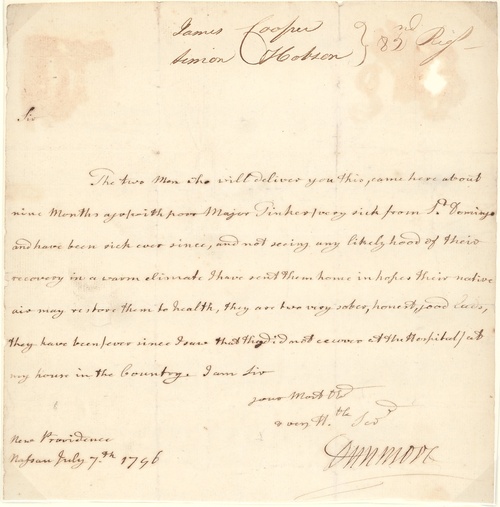 James Cooper
Simon Hobson } 82nd Regt
Sir
The two Men who will deliver you this, came here about
nine Months ago with poor Major Tinker, very sick from St. Domingo
and have been sick ever since, and not seeing any likelyhood of their
recovery in a warm climate I have sent them home in hopes their native
air may restore them to health, they are two very sober, honest, good Lads,
they have been (ever since I saw that they did not recover at the Hospital) at
my house in the Country. I am Sir
your Most Obt
& very Hble Servt
Dunmore
New Providence
Nassau July 7th 1796